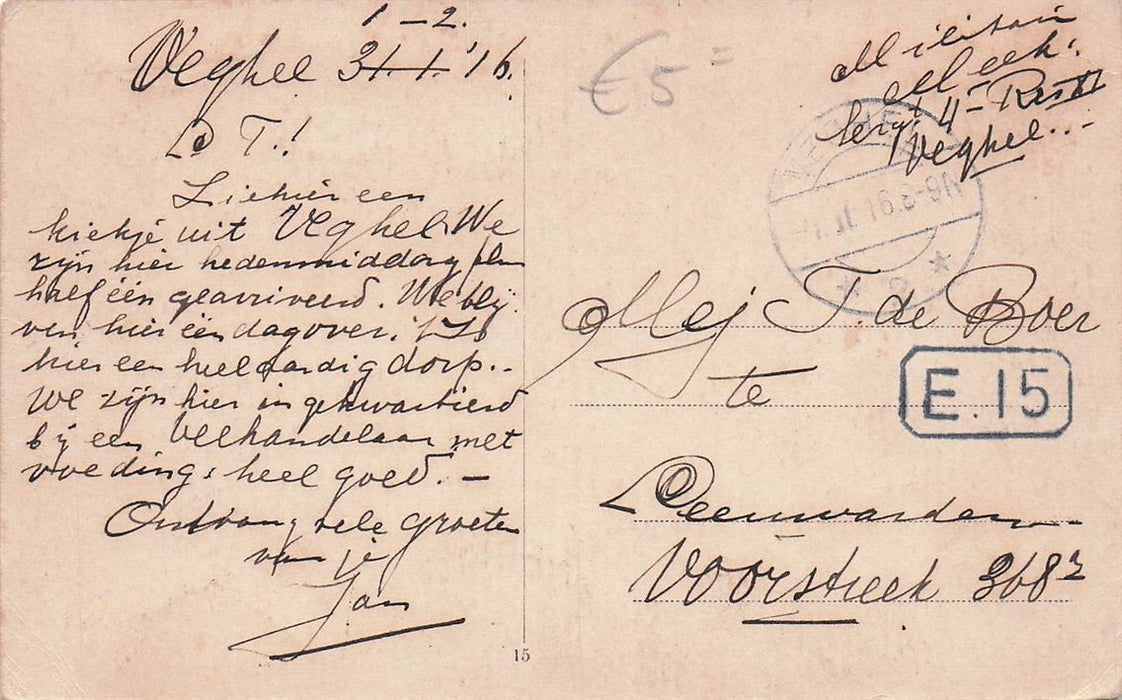 1 - 2.
Veghel 31.1.'16.
L T.!
Ziehier een
kiekje uit Veghel. We
zijn hier hedenmiddag plm
half één gearriveerd. We blij-
ven hier één dag over. 't Is
hier een heel aardig dorp..-
We zijn hier ingekwartierd
bij een veehandelaar met
voeding: heel goed. -
Ontvang vele groeten
van je
Jan
15
€5=
Militair
Mej
te
Sergt 4-
Veghel..-
VEGHEL
1.II.16.8-9N
* 2 *
Mej T. de Boer
te
E.15
Leeuwarden
Voorstreek 368²